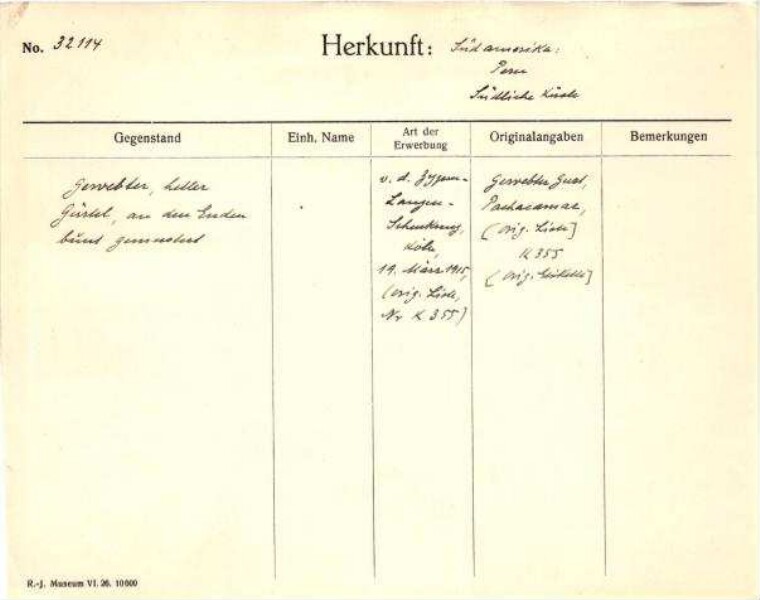 No. 32114
Herkunft: Südamerika:
Peru
Südliche Küste
Gegenstand
Einh. Name
Art der
Erwerbung
Originalangaben
Bemerkungen
Gewebter, heller
Gürtel, an den Enden
bunt gemustert
v. d. Zypen-
Langen-
Schenkung,
Köln,
19. März 1915,
(orig. Liste,
Nr K 355)
Gewebter Gurt,
Pachacamac,
(orig. Liste]
K 355
(orig. Etikette]
R.-J. Museum VI. 26. 10000